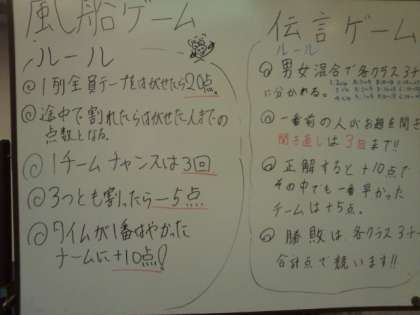 風船ゲーム
ルール
◎1列全員テープをはがせたら20点。
◎途中で割れたらはがせた人までの
点数となる。
◎1チームチャンスは3回
◎3つとも割ったら-5点
◎タイムが1番はやかった
チームに+10点!
伝言ゲーム
ルール
◎男女混合で各クラス3チ
に分かれる。
◎一番前の人がお題を聞き
聞き直しは3回まで!!
◎正解すると+10点で
その中でも一番早かった
チームは+5点。
◎勝敗は各クラス3チー
合計点で競います!!